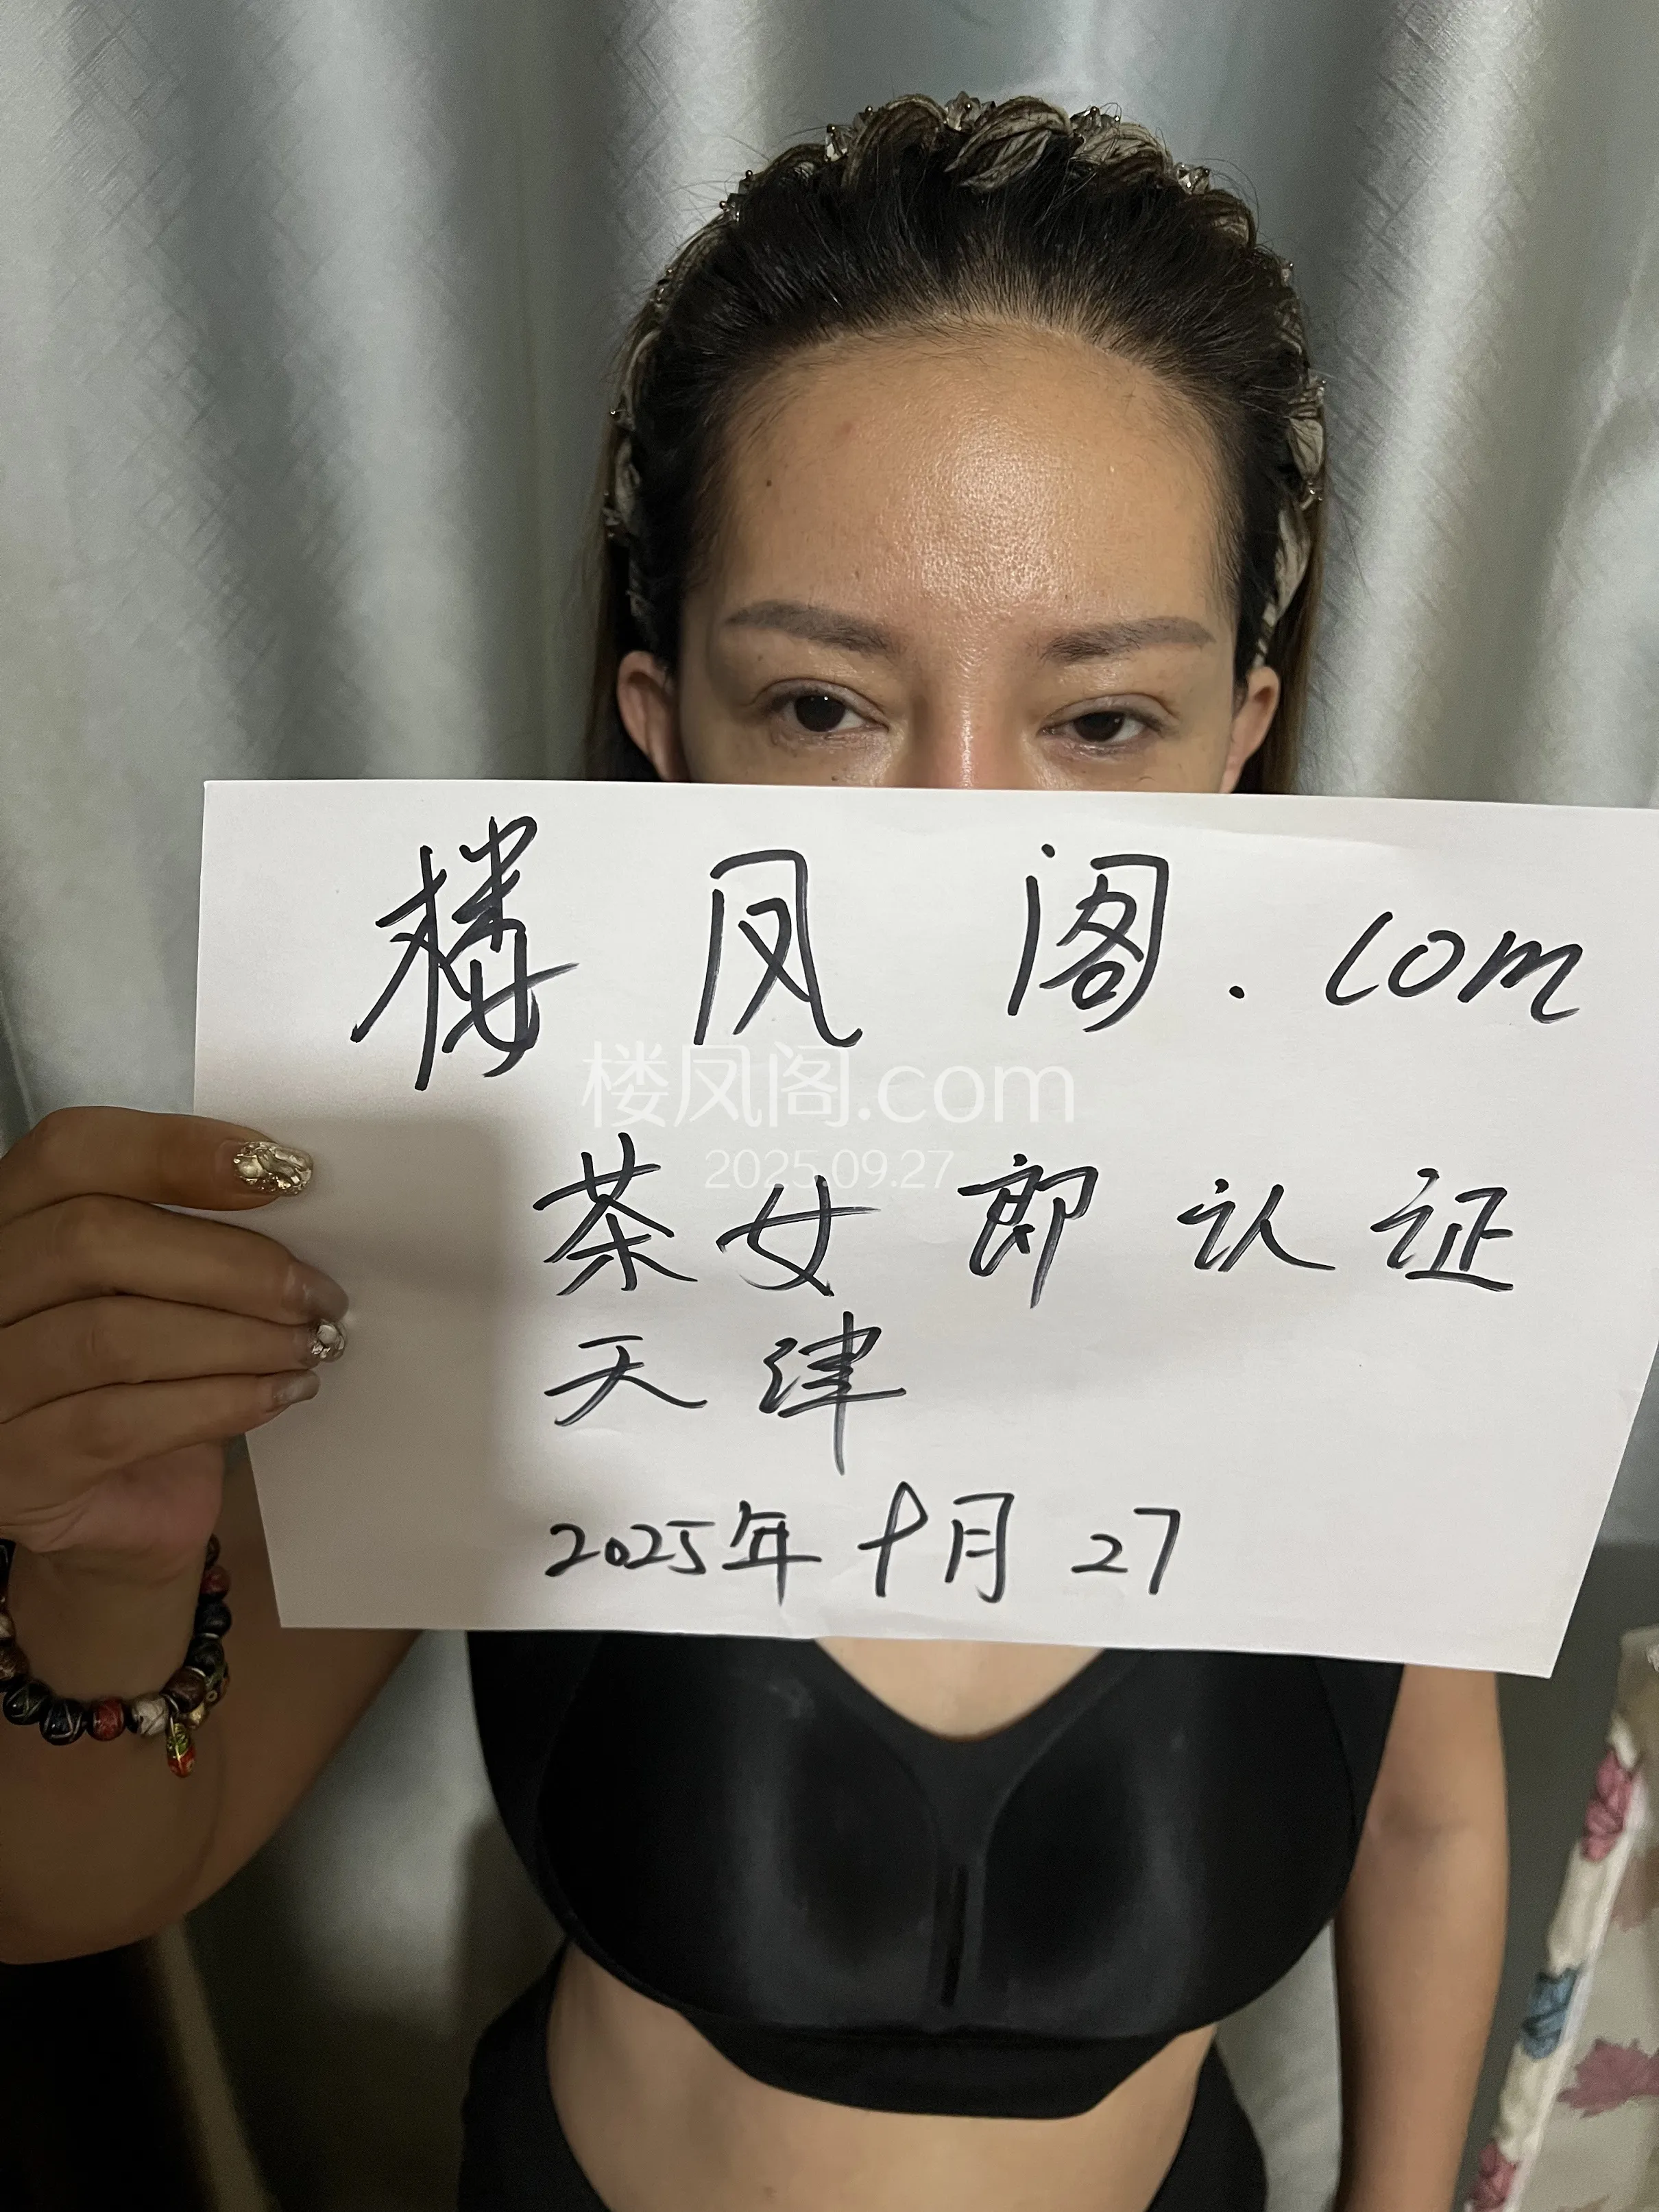 楼凤阁.com
楼凤阁.com
2025.09.27
茶女郎认证
天津
2025年十月27